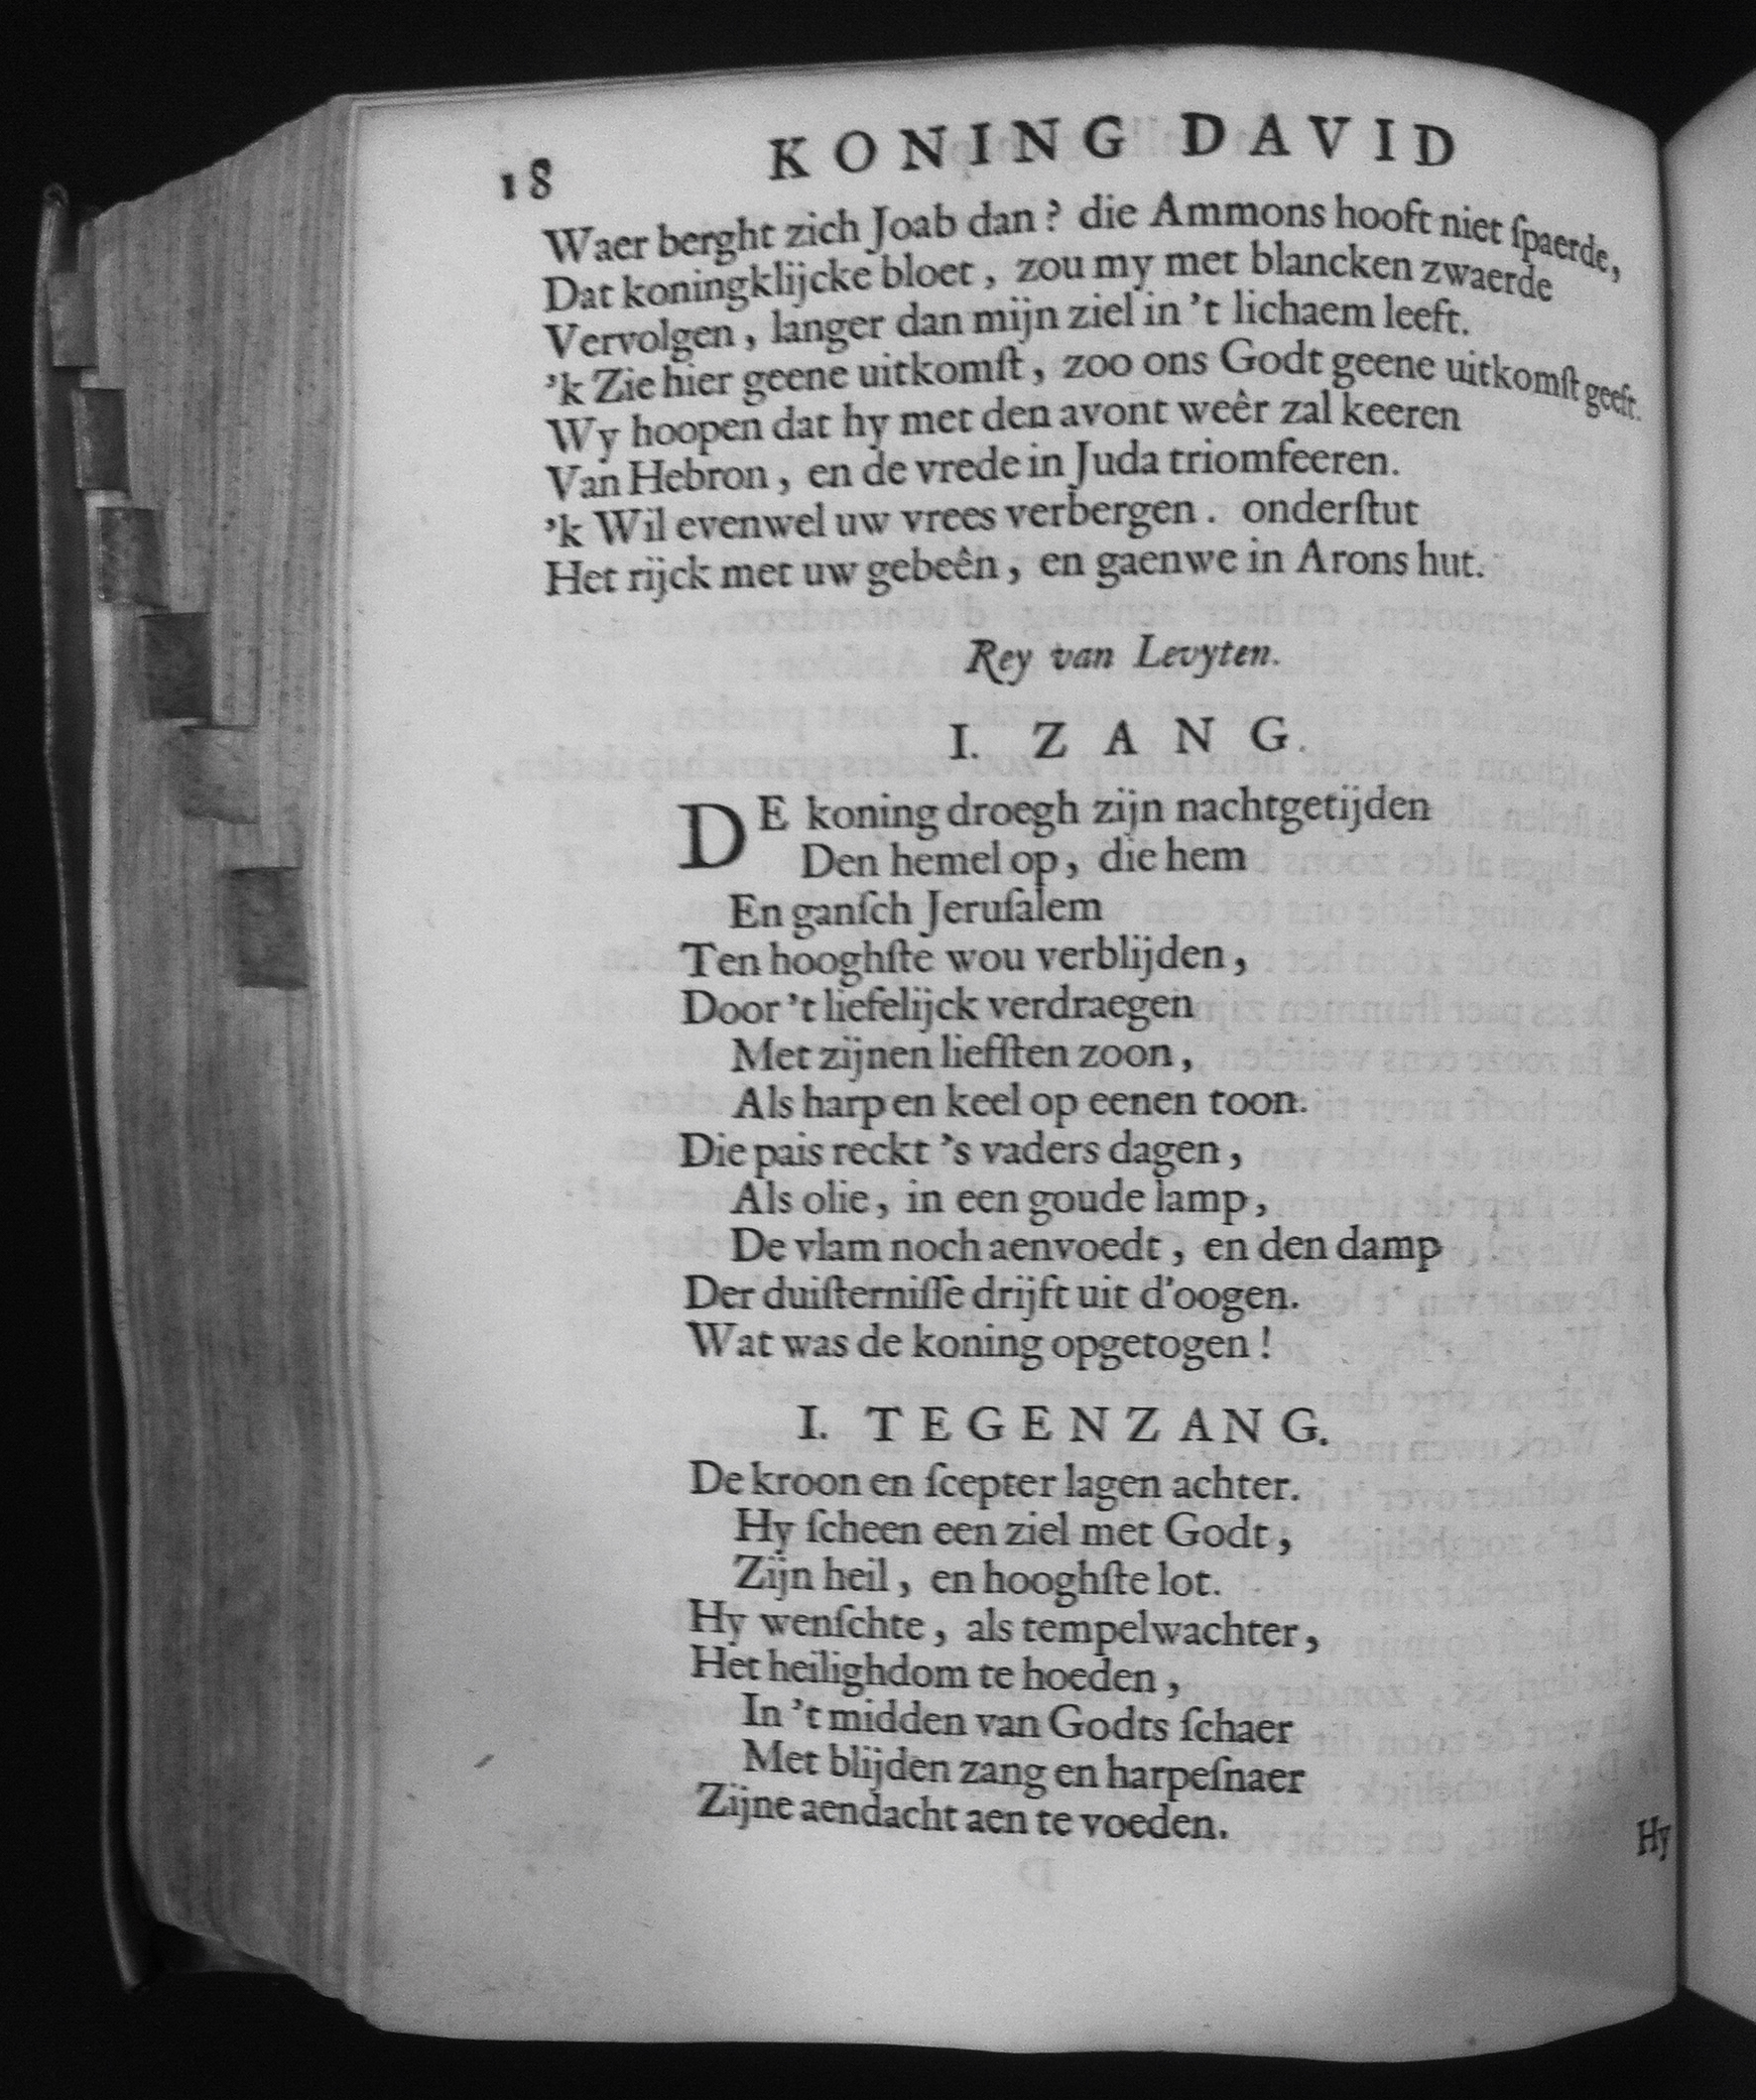 18
KONING DAVID
Waer berght zich Joab dan? die Ammons hooft niet ſpaerde,
Dat koningklijcke bloet, zou my met blancken zwaerde
Vervolgen, langer dan mijn ziel in 't lichaem leeft.
'k Zie hier geene uitkomſt, zoo ons Godt geene uitkomſt geeft.
Wy hoopen dat hy met den avont weêr zal keeren
Van Hebron, en de vrede in Juda triomfeeren.
'k Wil evenwel uw vrees verbergen. onderſtut
Het rijck met uw gebeên, en gaenwe in Arons hut.
Rey van Levyten.
I. ZANG.
DE koning droegh zijn nachtgetijden
Den hemel op, die hem
En ganſch Jeruſalem
Ten hooghſte wou verblijden,
Door 't liefelijck verdraegen
Met zijnen liefſten zoon,
Als harp en keel op eenen toon.
Die pais reckt 's vaders dagen,
Als olie, in een goude lamp,
De vlam noch aenvoedt, en den damp
Der duiſterniſſe drijft uit d'oogen.
Wat was de koning opgetogen!
I. TEGENZANG.
De kroon en ſcepter lagen achter.
Hy ſcheen een ziel met Godt,
Zijn heil, en hooghſte lot.
Hy wenſchte, als tempelwachter,
Het heilighdom te hoeden,
In 't midden van Godts ſchaer
Met blijden zang en harpeſnaer
Zijne aendacht aen te voeden.
Hy